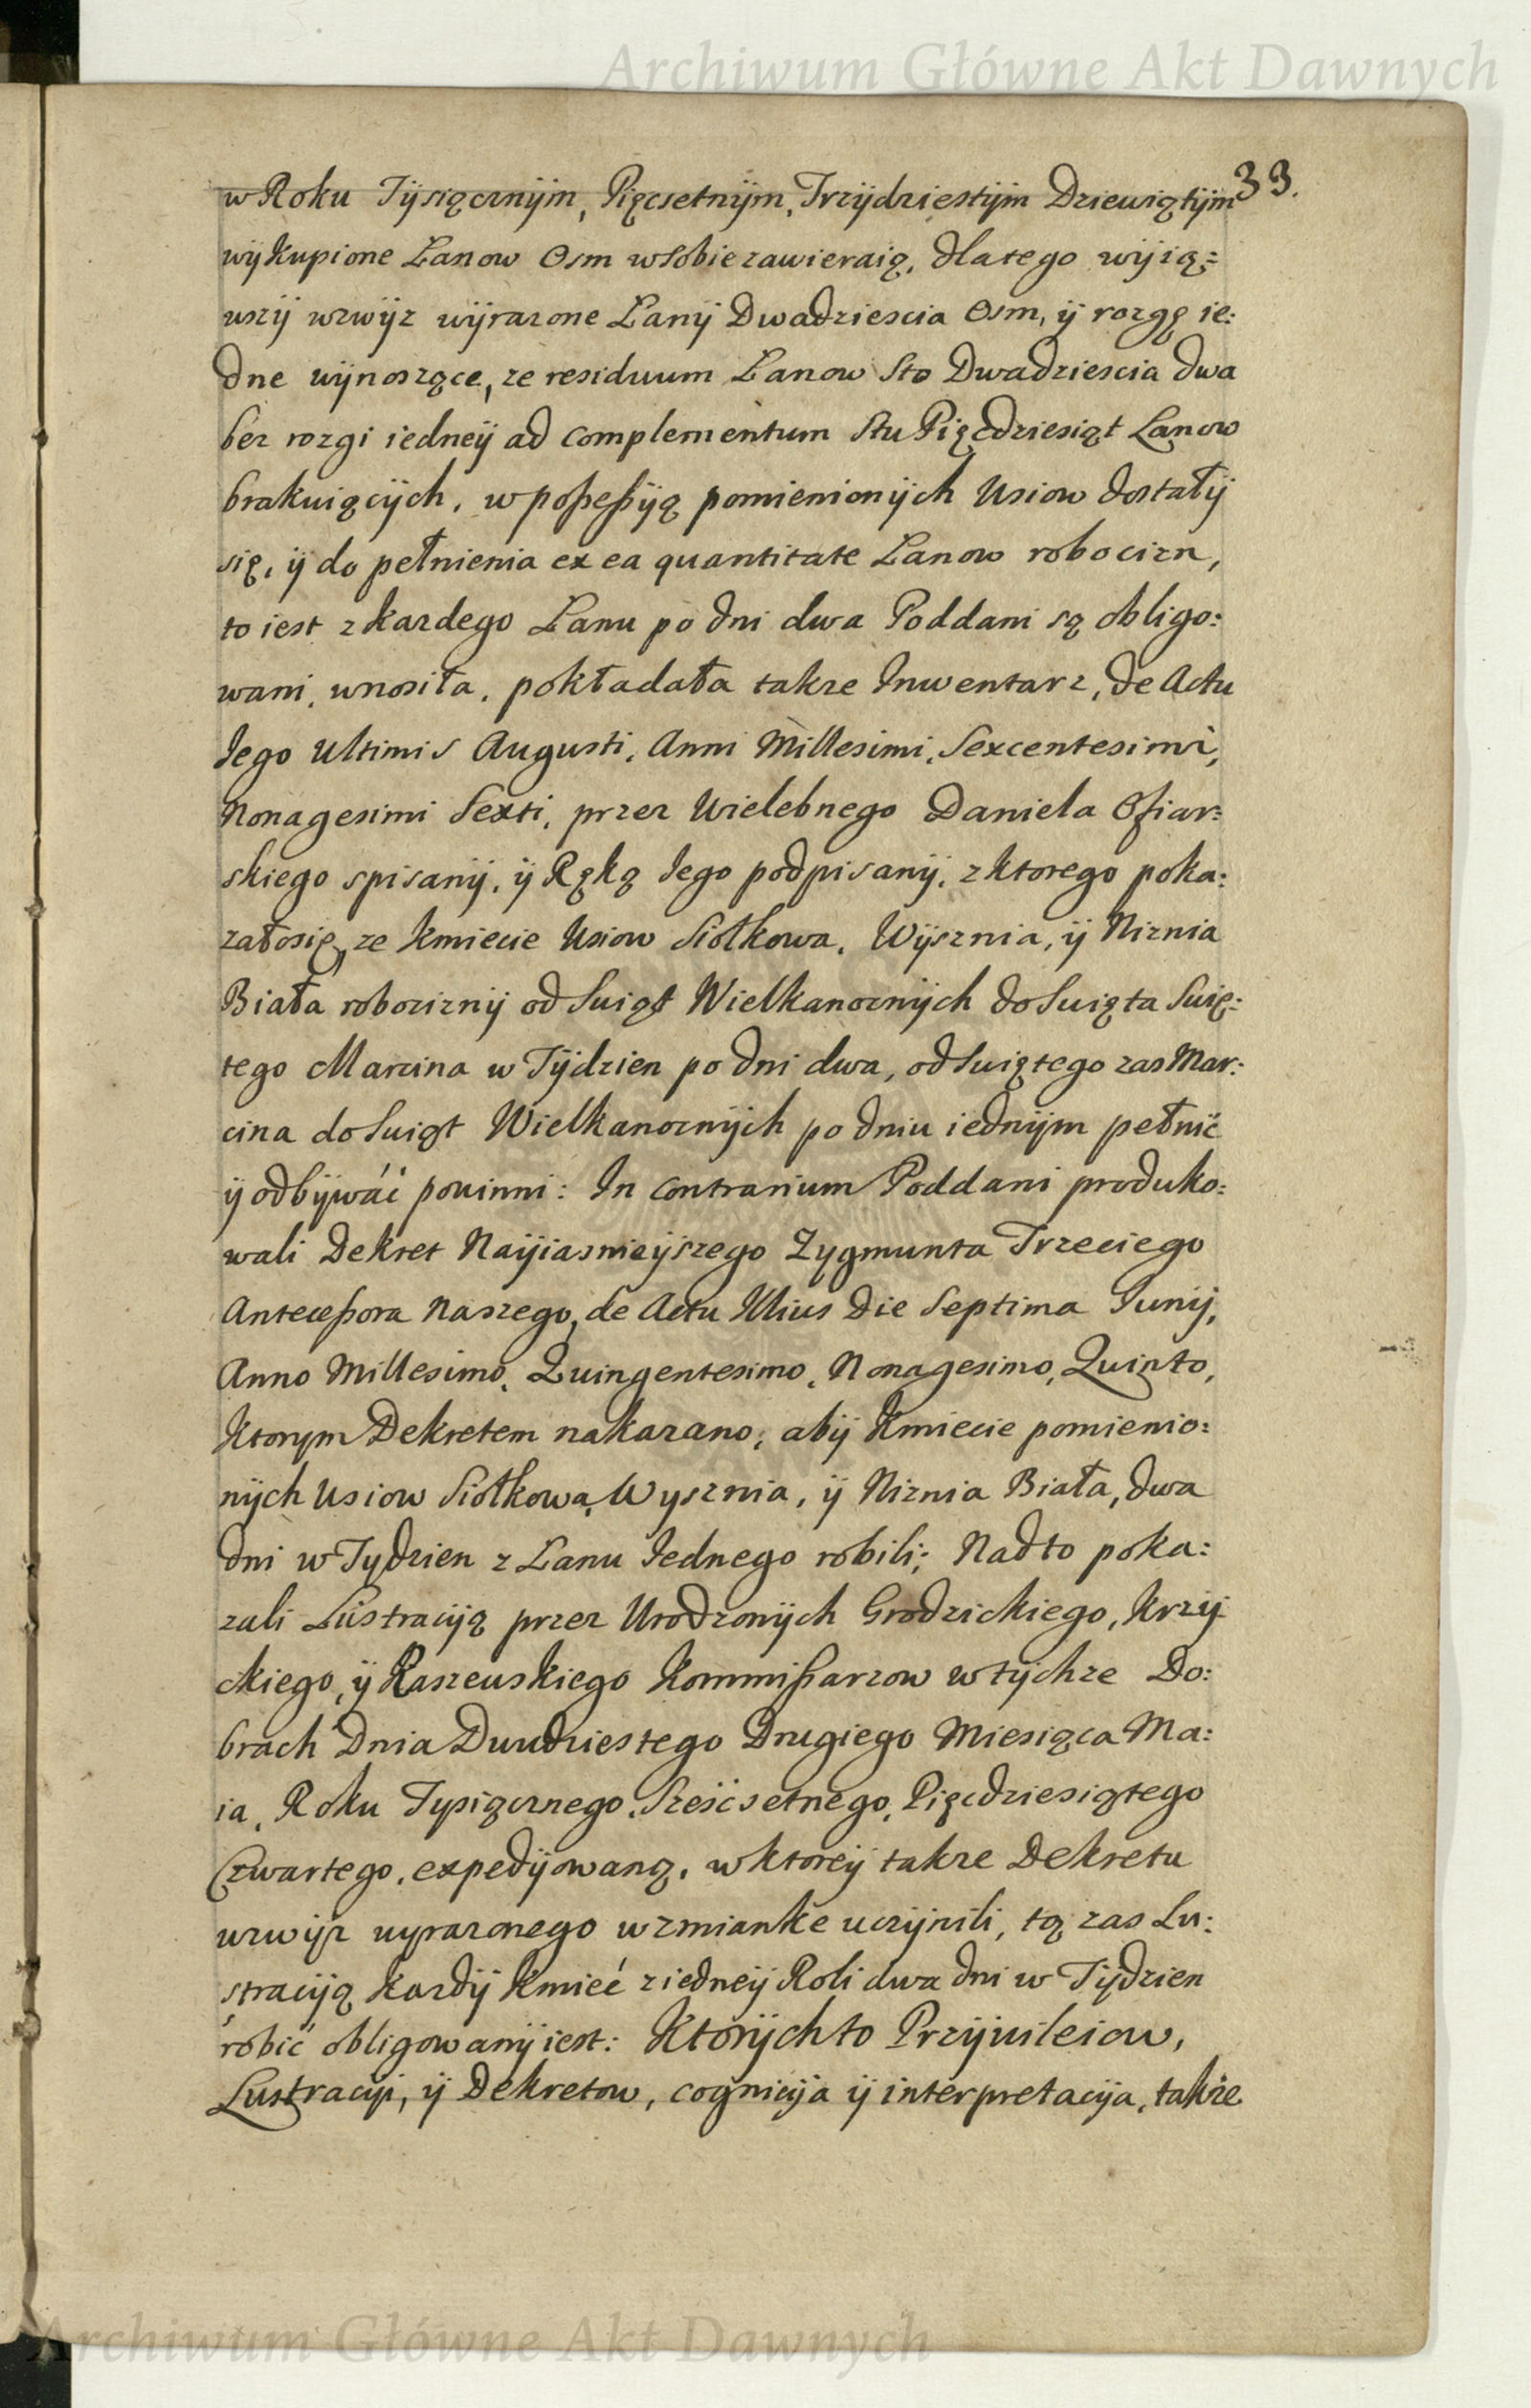 Archiwum Główne Akt Dawnych
33.
w Roku Tÿsiącznÿm, Pięcsetnÿm, Trzÿdziestÿm Dziewiątÿm
wÿkupione Łanow Osm w sobie zawieraią, dlatego wÿią=
wszÿ wzwÿz wÿrazone Łanÿ Dwadziescia Osm, ÿ rozgę ie:
dne wÿnoszące, ze residuum Łanow Sto Dwadziescia dwa
bez rozgi iedneÿ ad complementum Stu Pięćdziesiąt Łanow
brakuiącÿch, w poßeßÿą pomienionÿch Wsiow dostałÿ
się, ÿ do pełnienia ex ea quantitate Łanow robocizn,
to iest z kazdego Łanu po dni dwa Poddani są obligo:
wani, wnosiła, pokładała takze Inwentarz, de Actu
Iego Ultimis Augusti, Anni Millesimi, Sexcentesimi,
Nonagesimi Sexti, przez Wielebnego Daniela Ofiar:
skiego spisanÿ, ÿ Ręką Iego podpisanÿ, z ktorego poka:
załosię, ze Kmiecie Wsiow Siołkowa, Wÿsznia, ÿ Niznia
Biała robociznÿ od Swiąt Wielkanocnÿch do Swięta Swię:
tego Marcina w Tÿdzien po dni dwa, od Swiętego zas Mar:
cina do Swiąt Wielkanocnÿch po dniu iednÿm pełnić
ÿ odbÿwać powinni: In contrarium Poddani produko:
wali Dekret Naÿiasnieÿszego Zygmunta Trzeciego
Anteceßora Naszego, de Actu Illius Die Septima Iunÿ,
Anno Millesimo, Quingentesimo, Nonagesimo, Quinto,
Ktorym Dekretem nakazano, abÿ Kmiecie pomienio:
nÿch Wsiow Siołkowa, Wysznia, ÿ Niznia Biała, dwa
dni w Tydzien z Łanu Iednego robili; Nadto poka:
zali Lustracÿą przez Urodzonÿch Grodzickiego, Krzÿ
ckiego, ÿ Raszewskiego Kommißarzow w tÿchze Do:
brach Dnia Dwudziestego Drugiego Miesiąca Ma:
ia, Roku Tysiącznego, Sześćsetnego, Pięćdziesiątego
Czwartego, expedÿowaną, w ktoreÿ takze Dekretu
wzwÿz wyrazonego wzmianke uczÿnili, tą zas Lu:
stracÿą kazdÿ Kmieć z iedneÿ Roli dwa dni w Tÿdzien
robić obligowanÿ iest: Ktorÿchto Przÿwileiow,
Lustracÿi, ÿ Dekretow, cognicÿa ÿ interpretacÿa, takźe
Archiwum Główne Akt Dawnych